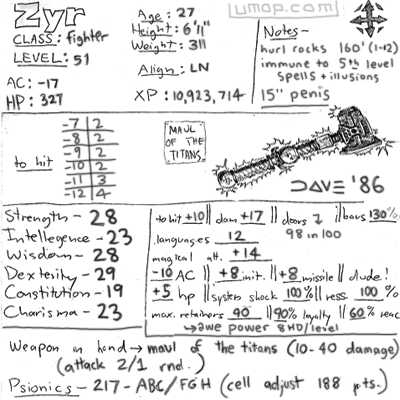 Zyr
CLASS: fighter
LEVEL: 51
AC: -17
HP: 327
Age: 27
Height: 6'11"
Weight: 311
Align: LN
XP: 10,923,714
umop.com
Notes-
hurl rocks 160' (1-12)
immune to 5th level
spells + illusions
15" penis
to hit
-7 | 2
-8 | 2
-9 | 2
-10 | 2
-11 | 3
-12 | 4
MAUL
OF THE
TITANS.
DAVE '86
Strength - 28
Intellegence - 23
Wisdom - 28
Dexterity - 29
Constitution - 19
Charisma - 23
to hit +10 || dam +17 || doors 2 || bars 130%
languages 12 98 in 100
magical att. +14
-10 AC || +8 init. || +8 missile || dude!
+5 hp || system shock 100% || ress. 100 %
max. retainers 90 || 90% loyalty || 60% reac
↳ awe power 8HD/level
Weapon in hand → maul of the titans (10-40 damage)
(attack 2/1 rnd.)
Psionics - 217 - ABC/FGH (cell adjust 188 pts.)